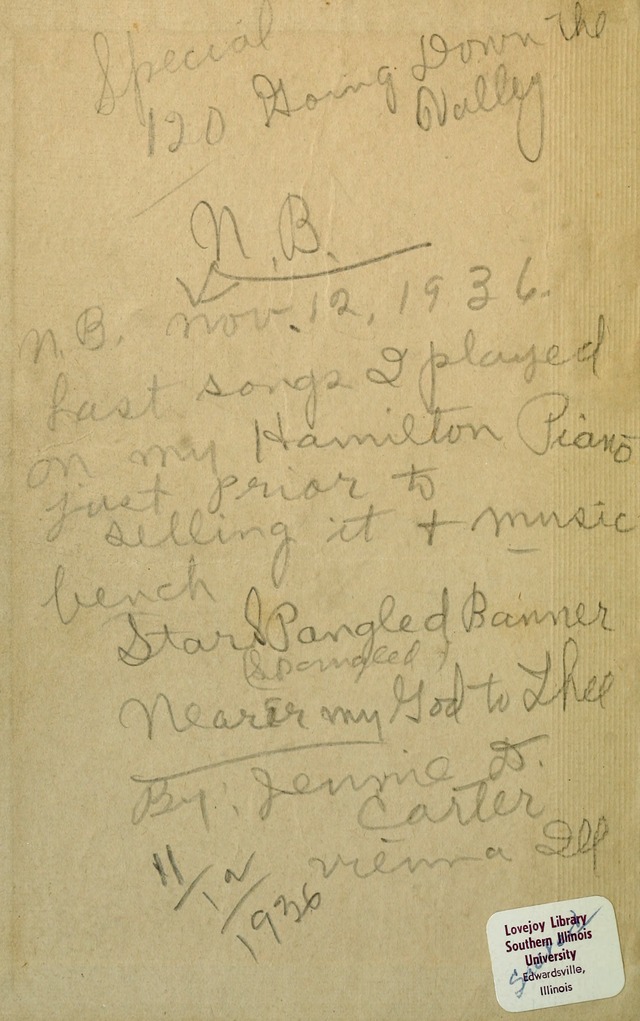 Special
120 Going Down the
Valley
N.B.
N.B. Nov. 12, 1936.
Last songs I played
on my Hamilton Piano
just prior to
selling it + music
bench
Star Spangled Banner
(Spangled)
Nearer my God to Thee
By: Jennie D.
Carter
11/12/1936 Vienna Ill
Lovejoy Library
Southern Illinois
University
Edwardsville,
Illinois